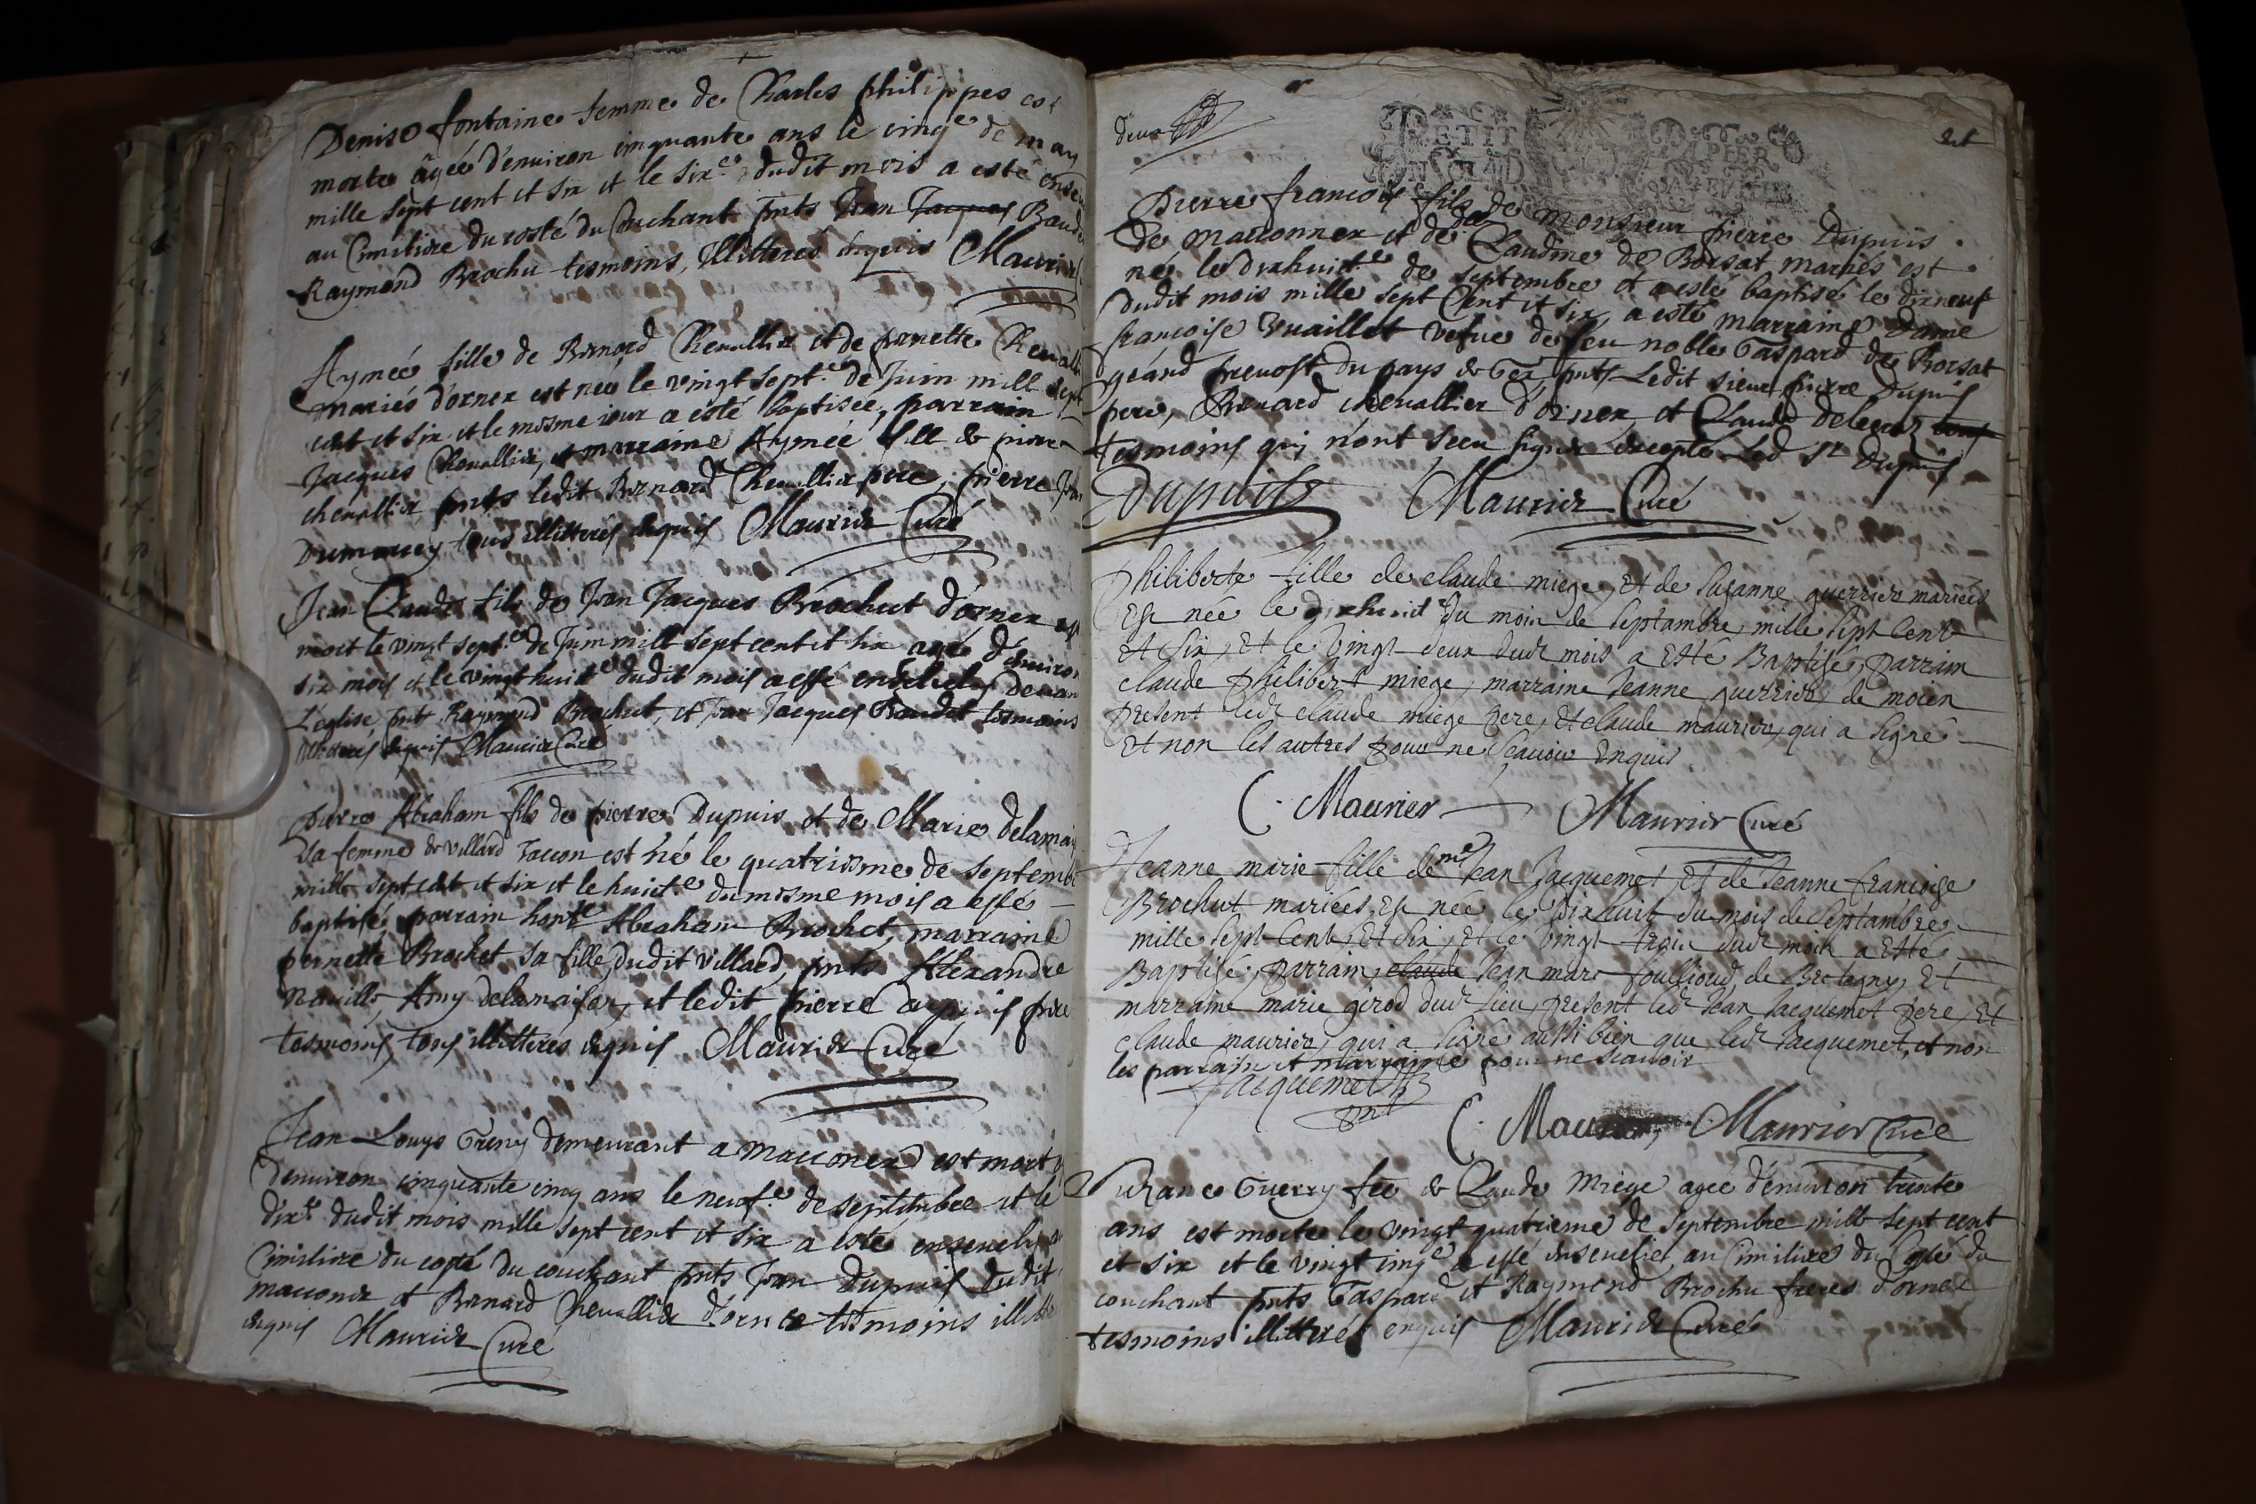 Denise fontaine femme de Charles philippes est
morte agée d'environ cinquante ans le cinqe de may
mille sept cent et six et le sixe dudit mois a esté
au Cimitiere du costé du Couchant pnts Jean Jacques
Raymond Brochu tesmoins, illitteres enquis Maurier
Aymée fille de Bernard Chevallier et de pernette
mariés d'ornex est née le vingt septe de Juin mill sept
cent et six et le mesme iour a esté baptisée, parrain
Jacques Chevallier, et marraine Aymée fille de pierre
chevallier pnts ledit Bernard Chevallier pere, pierre
tous illitterés enquis Maurier Curé
Jean Claude fils de Jean Jacques Brochut d'ornex est
mort le vingt septe de Juin mill sept cent et six agé d'environ
six mois et le vingt huicte dudit mois a esté ensevely devant
L'eglise pnt Raymond Brochut, et Jean Jacques Baudet tesmoins
illiterés enquis Maurier Curé
Pierre Abraham fils de pierre Dupuis et de Marie
sa femme de villard Taccon est né le quatriesme de septemb
mille sept cent et six et le huicte du mesme mois a esté
baptisé, parrain honble Abraham Brochet, marraine
pernette Brochet sa fille dudit villard, pnts Alexandre
Amy delamaison, et ledit pierre dupuis pere
tesmoins, tous illitterés enquis Maurier Curé
Jean Louys Greny demeurant a macconex est mort
d'environ cinquante cinq ans le neufe de septembre et le
dixe dudit mois mille sept cent et six a esté ensevely
Cimitiere du costé du couchant pnts Jean Dupuis dudit
macconex et Bernard Chevallier d'ornex tesmoins
enquis Maurier Curé
deux
PETIT PAPIER
Pierre francois fils de monsieur pierre Dupuis
de macconnex et de de Claudine de Borsat mariés est
né le dixhuicte de septembre et a esté baptisé le dixneuf
dudit mois mille sept Cent et six, a esté marraine Dame
francoise Vuaillet vefve de feu noble Gaspard de Borsat
grand prevost du pays de Gex, pnts Ledit sieur pierre Dupuis
pere, Bernard chevallier d'ornex, et Claude
tesmoins qui n'ont sceu signer excepté Led Sr Dupuis
Dupuis Maurier Curé
Philiberte fille de claude miege, Et de Suzanne guerrier mariées
Est née le dixhuict du mois de septambre mille sept Cent
Et six, Et le vingt deux dudt mois a Esté Baptisée, parrain
claude philibert miege, marraine Jeanne guerrier de moien
present ledt claude miege pere, Et claude maurier, qui a signé
Et non les autres pour ne scavoir Enquis
C. Maurier Maurier Curé
Jeanne marie fille de me Jean Jacquemet, Et de Jeanne francoise
Brochut mariées, Est née le dixhuit du mois de septambre
mille sept Cent, Et six, Et le vingt trois dudt mois a Esté
Baptisé, parrain, claude Jean marc foullioud, de Bretagny, Et
marraine marie girod dudt lieu, present ledt Jean Jacquemet pere, Et
claude maurier, qui a signé aussi bien que ledt Jacquemet, et non
les parrain et marraine pour ne scavoir
Jacquemet
C. Maurier Maurier Curé
Suzane Guerry fee de Claude Miege agée d'environ trente
ans est morte le vingt quatrieme de septembre mill sept cent
et six et le vingt cinqe a esté ensevelie au Cimitiere du Costé du
couchant pnts Gaspard et Raymond Brochu freres d'ornex
tesmoins illitterés enquis Maurier Curé